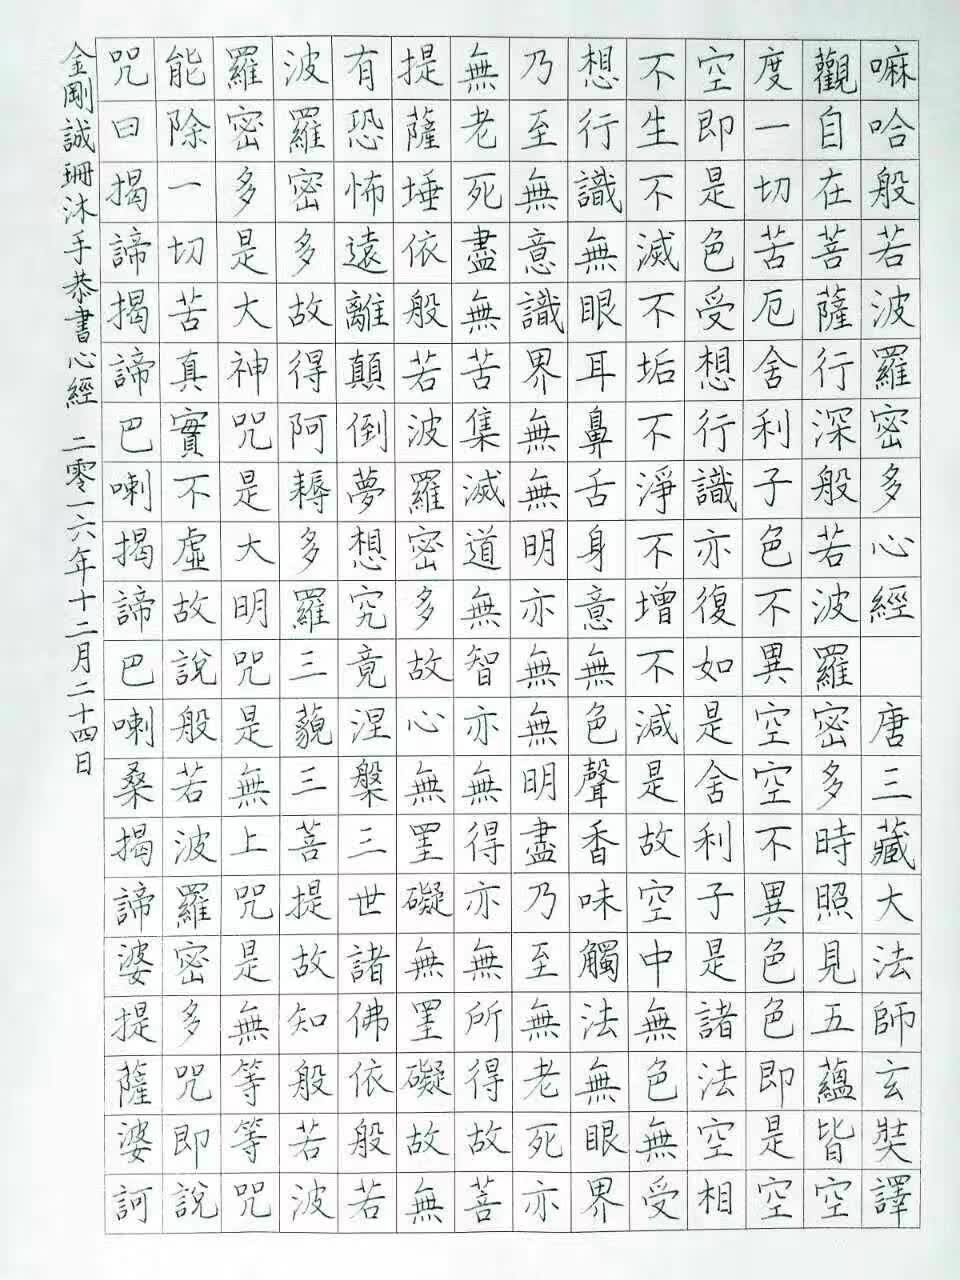 嘛哈般若波羅密多心經 唐三藏大法師玄奘譯
觀自在菩薩行深般若波羅密多時照見五蘊皆空
度一切苦厄舍利子色不異空空不異色色即是空
空即是色受想行識亦復如是舍利子是諸法空相
不生不滅不垢不淨不增不減是故空中無色無受
想行識無眼耳鼻舌身意無色聲香味觸法無眼界
乃至無意識界無無明亦無無明盡乃至無老死亦
無老死盡無苦集滅道無智亦無得亦無所得故菩
提薩埵依般若波羅密多故心無罣礙無罣礙故無
有恐怖遠離顛倒夢想究竟涅槃三世諸佛依般若
波羅密多故得阿耨多羅三藐三菩提故知般若波
羅密多是大神咒是大明咒是無上咒是無等等咒
能除一切苦真實不虛故說般若波羅密多咒即說
咒曰揭諦揭諦巴喇揭諦巴喇桑揭諦婆提薩婆訶
金剛誠珊沐手恭書心經 二零一六年十二月二十四日